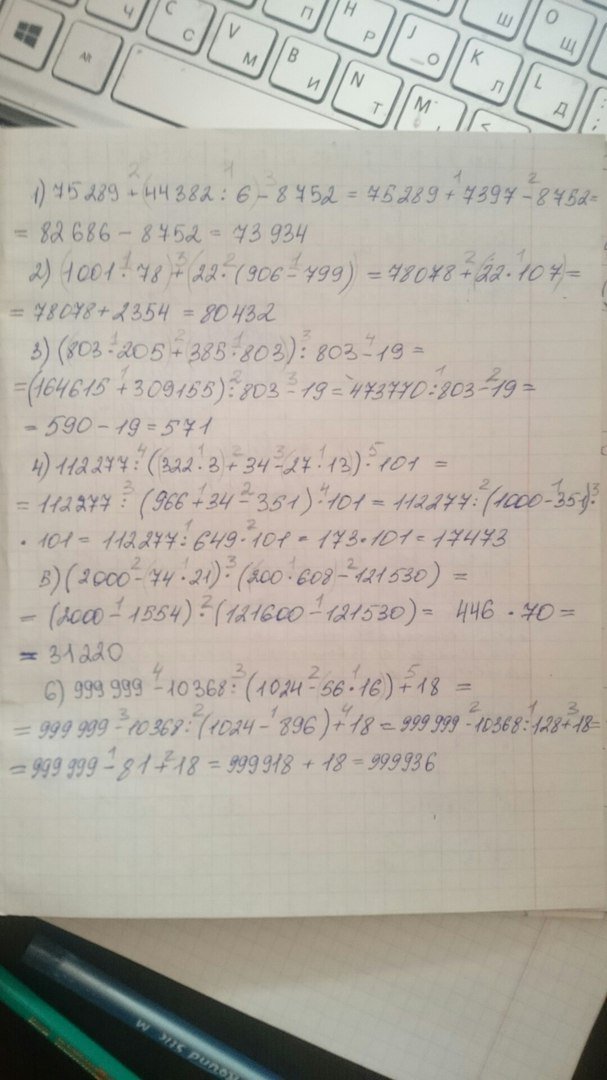 Alt
Ч
С С
V М
В И
П
Н Р
N Т
J О
М Ь
Ш
К Л
О Щ
L Д
1) 75 289 + (44 382 : 6) - 8 752 = 75289 + 7397 - 8752 =
= 82 686 - 8752 = 73 934
2) (1001 · 78) + (22 · (906 - 799) = 78078 + (22 · 107) =
= 78078 + 2354 = 80432
3) (803 · 205) + (385 · 803) : 803 - 19 =
= (164615 + 309155) : 803 - 19 = 473770 : 803 - 19 =
= 590 - 19 = 571
4) 112277 : (322 · 3) + 34 - (27 · 13) · 101 =
= 112277 : (966 + 34 - 351) · 101 = 112277 : (1000 - 351) ·
· 101 = 112277 : 649 · 101 = 173 · 101 = 17473
5) (2000 - 74 · 21) · (200 · 608 - 121530) =
= (2000 - 1554) · (121600 - 121530) = 446 · 70 =
= 31220
6) 999 999 - 10368 : (1024 - 56 · 16) + 18 =
= 999 999 - 10368 : (1024 - 896) + 18 = 999 999 - 10368 : 128 + 18 =
= 999 999 - 81 + 18 = 999918 + 18 = 999936